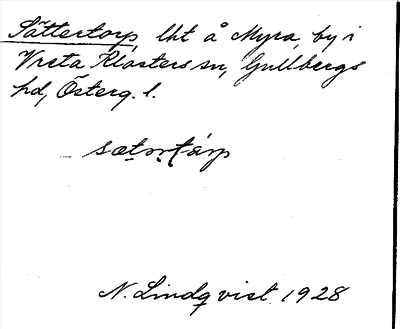 Sättertorp, lht å Myra, by i
Vreta Klosters sn, Gullbergs
hd, Österg. l.
sætərtårp
N. Lindqvist 1928